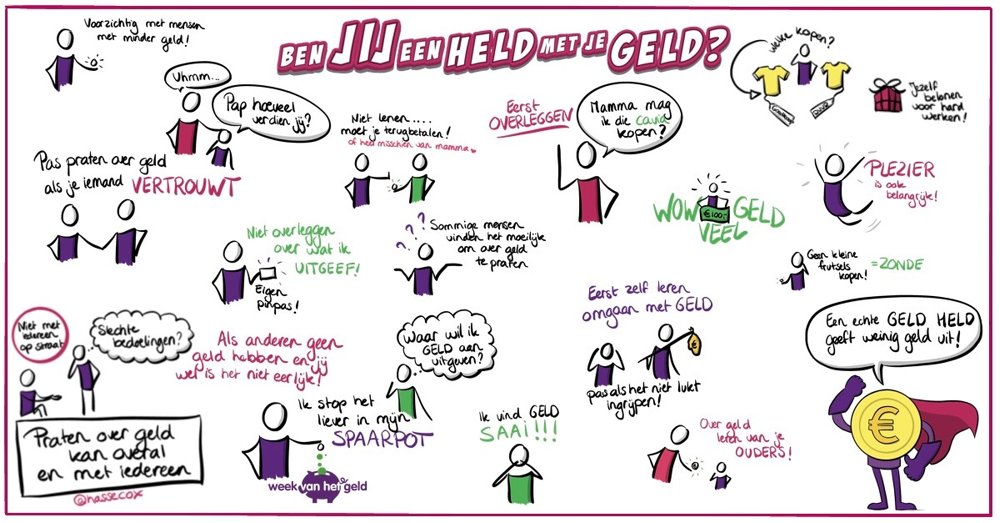 BEN JIJ EEN HELD MET JE GELD?
Voorzichtig met mensen
met minder geld!
Uhmm...
Pap hoeveel
verdien jij?
Pas praten over geld
als je iemand VERTROUWT
Niet lenen....
moet je terugbetalen!
of heel misschien van mamma
Eerst
OVERLEGGEN
Mamma mag
ik die cavia
kopen?
welke kopen?
jezelf
belonen
voor hard
werken!
PLEZIER
is ook
belangrijk!
WOW GELD
VEEL
€100,-
Niet overleggen
over wat ik
UITGEEF!
Eigen
pinpas!
???
Sommige mensen
vinden het moeilijk
om over geld
te praten
Geen kleine
frutsels
kopen!
=ZONDE
Eerst zelf leren
omgaan met GELD
€
pas als het niet lukt
ingrijpen!
Niet met
iedereen
op straat
Slechte
bedoelingen?
Als anderen geen
geld hebben en jij
wel is het niet eerlijk!
Waar wil ik
GELD aan
uitgeven?
Een echte GELD HELD
geeft weinig geld uit!
€
Praten over geld
kan overal
en met iedereen
@hassecox
Ik stop het
liever in mijn
SPAARPOT
week van het geld
Ik vind GELD
SAAI!!!
Over geld
leren van je
OUDERS!